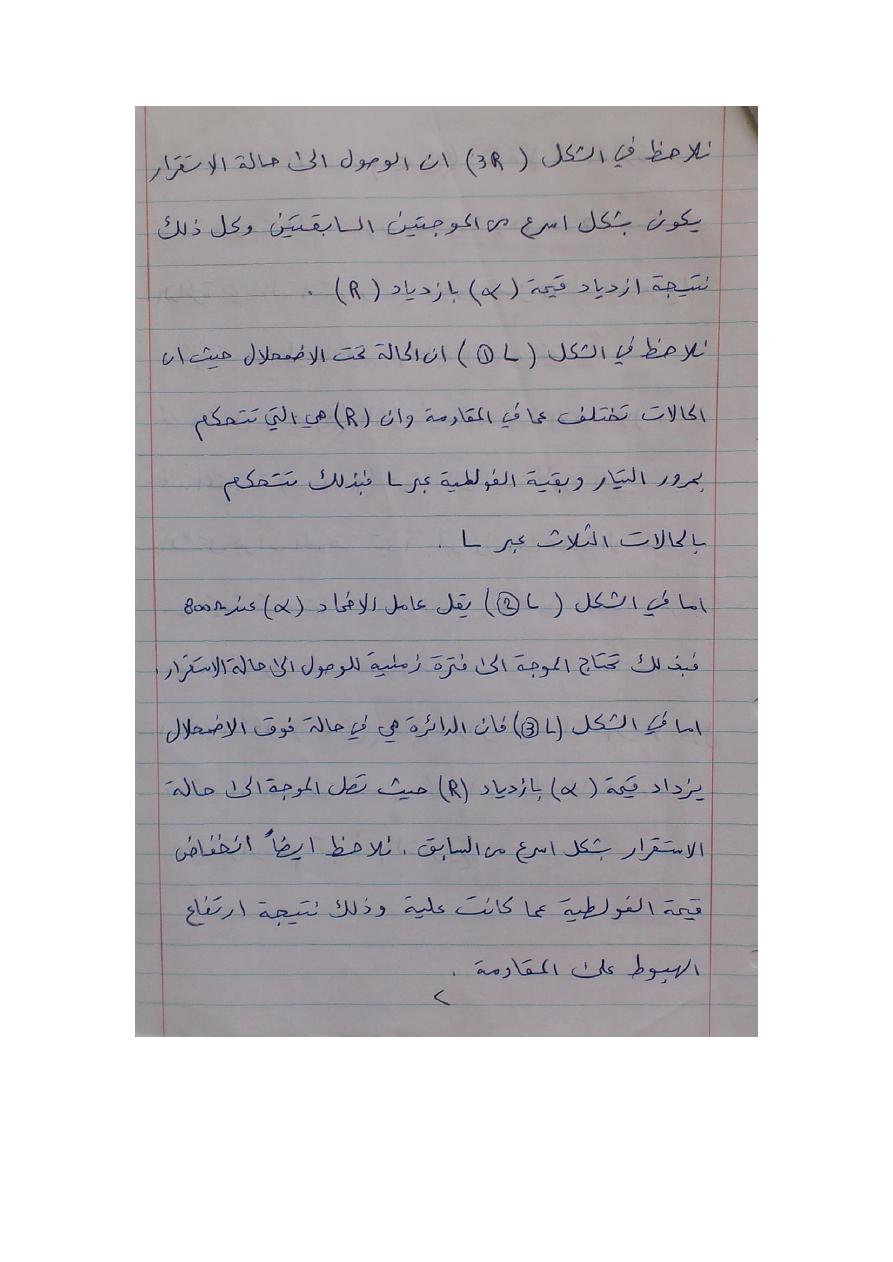 نلاحظ في الشكل (3R) ان الوصول الى حالة الاستقرار
يكون بشكل اسرع من الموجتين السابقتين وكل ذلك
نتيجة ازدياد قيمة (α) بازدياد (R) .
نلاحظ في الشكل (L ①) ان الحالة تحت الاضمحلال حيث ان
الحالات تختلف عما في المقاومة وان (R) هي التي تتحكم
بمرور التيار وبقية الفولطية عبر L فبذلك تتحكم
بالحالات الثلاث عبر L .
اما في الشكل (L ②) يقل عامل الاخماد (α) عند 800Ω
فبذلك تحتاج الموجة الى فترة زمنية للوصول الى حالة الاستقرار .
اما في الشكل (L ③) فان الدائرة هي في حالة فوق الاضمحلال
يزداد قيمة (α) بازدياد (R) حيث تصل الموجة الى حالة
الاستقرار بشكل اسرع من السابق . نلاحظ ايضاً انخفاض
قيمة الفولطية عما كانت علية وذلك نتيجة ارتفاع
الهبوط على المقاومة .